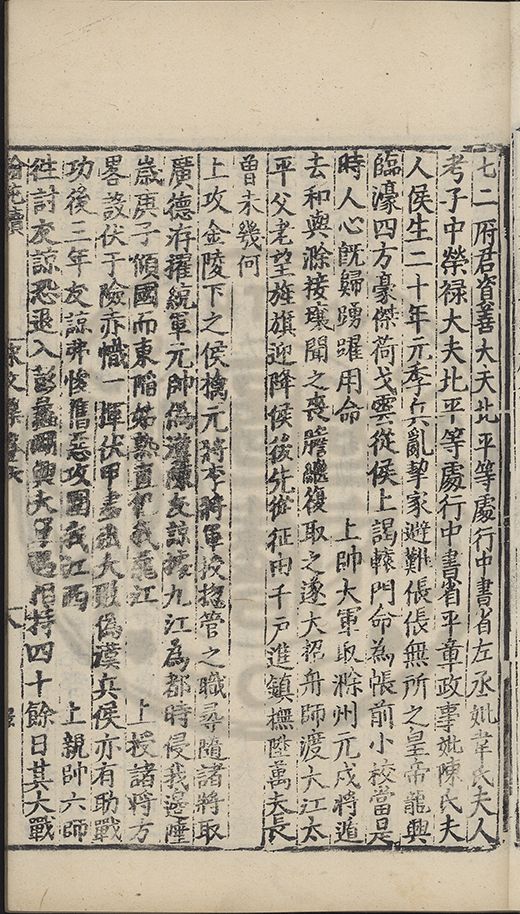 七二府君資善大夫北平等處行中書省左丞妣韋氏夫人
考子中榮禄大夫北平等處行中書省平章政事妣陳氏夫
人侯生二十年元季兵亂挈家避難倀倀無所之皇帝龍興
臨濠四方豪傑荷戈雲從侯上謁轅門命為帳前小校當是
時人心既歸踴躍用命 上帥大軍取滁州元戍將遁
去和與滁接壤聞之喪膽繼復取之遂大招舟師渡大江太
平父老望旌旗迎降侯後先從征由千戶進鎮撫陞萬夫長
曾未幾何
上攻金陵下之侯擒元將李將軍授捴管之職尋隨諸將取
廣德洊擢統軍元帥偽漢陳友諒據九江為都時侵我邊陲
歲庚子傾國而東陷姑熟直犯我龍江 上授諸將方
畧設伏于險赤幟一揮伏甲盡出大敗偽漢兵侯亦有助戰
功後三年友諒弗悛舊惡攻圍我江西 上親帥六師
徃討友諒恐退入彭蠡 與大軍遇相持四十餘日其大戰